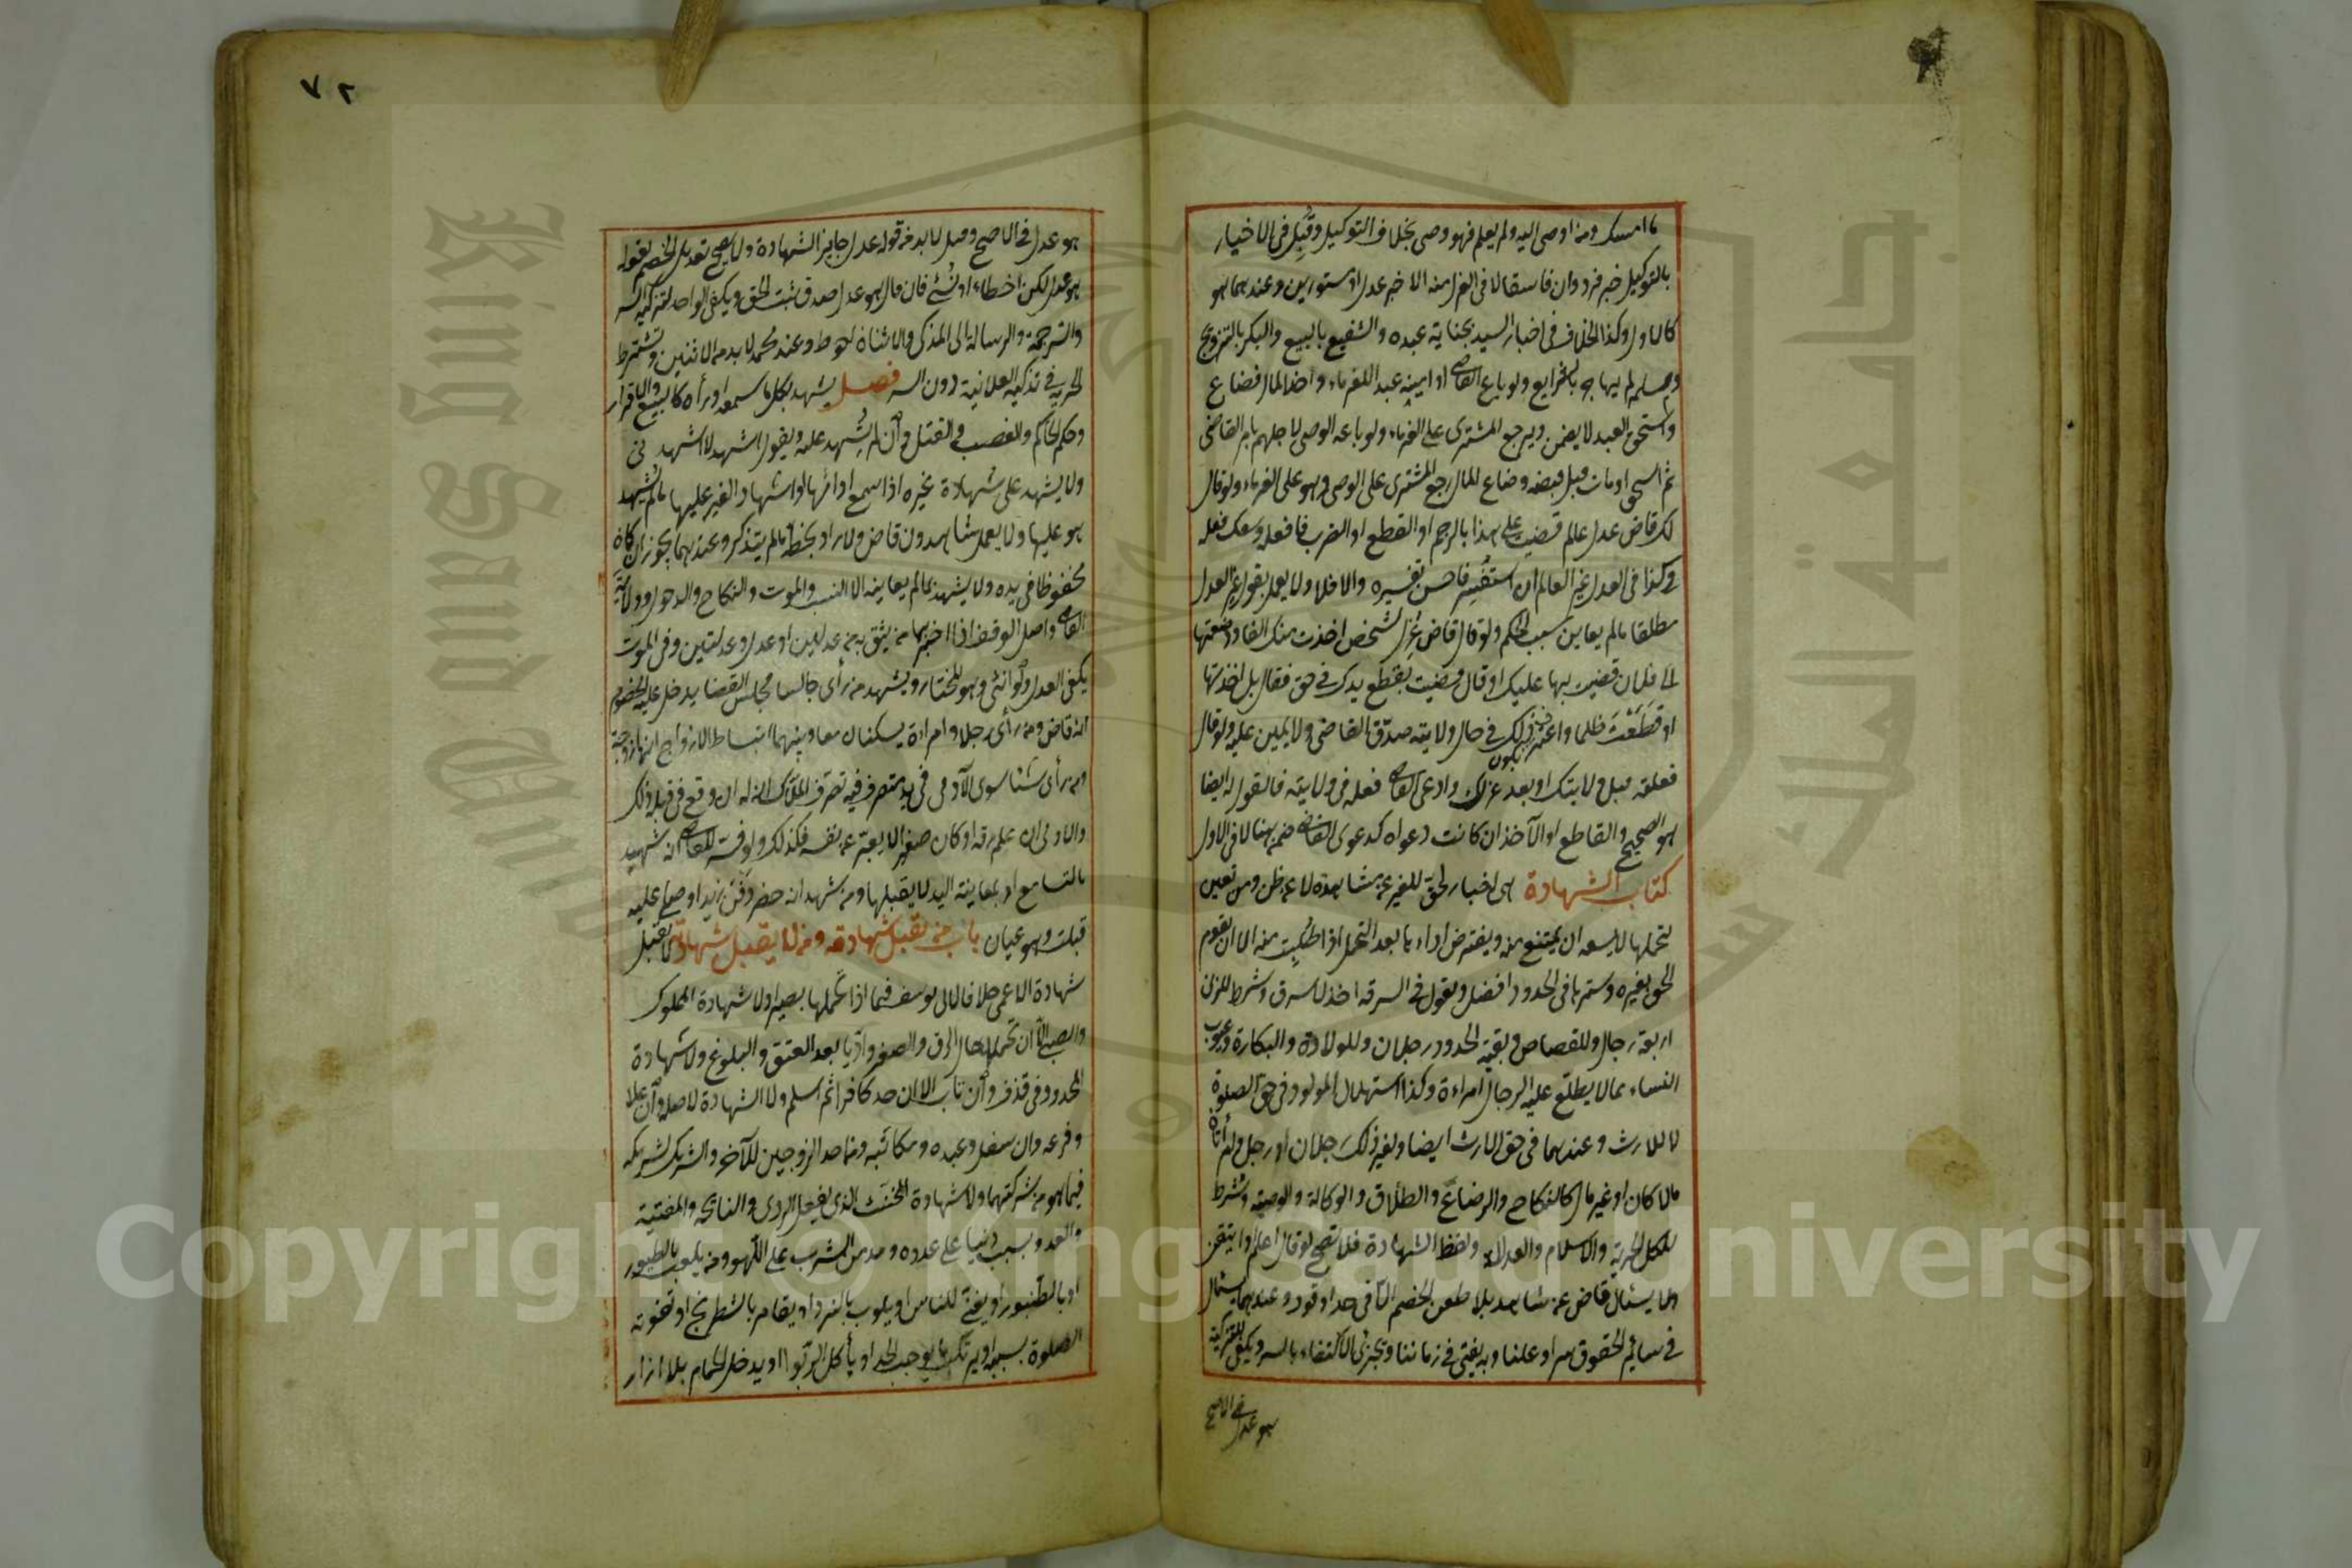 ما امسك ومن اوصى اليه ولم يعلم فهو وصى بخلاف التوكيل وقُبِل فى الاخبار
بالتوكيل خبر فرد وان فاسقا لا فى العزل منه الا خبر عدل او مستورين وعندهما هو
كالاول وكذا الخلاف فى اخبار السيد بجناية عبده والشفيع بالبيع والبكر بالتزويج
ومسلم لم يهاجر بالشرايع ولو باع القاضى او امينه عبد اللغرماء واخذ المال فضاع
واستحق العبد لا يضمن ويرجع المشترى على الغرماء ولو باعه الوصى لاجلهم بامر القاضى
ثم استحق او مات قبل قبضه وضاع المال رجع المشترى على الوصى وهو على الغرماء ولو قال
لك قاض عدل عالم قضيت على هذا بالرجم او القطع او الضرب فافعله وسعك فعله
وكذا فى العدل غير العالم ان استفسر فاحسن تفسيره والا فلا ولا يعمل بقول غير العدل
مطلقا ما لم يعاين سبب الحكم ولو قال قاض عُزِل لشخص اخذت منك الفا ودفعتها
الى فلان قضيت بها عليك او قال قضيت بقطع يدك فى حق فقال بل اخذتها
او قَطَعْتَ ظلما واعترف بكون ذلك فى حال ولايته صدّق القاضى ولا يمين عليه ولو قال
فعلته قبل ولايتك او بعد عزلك وادعى القاضى فعله فى ولايته فالقول له ايضا
هو الصحيح والقاطع او الآخذ ان كانت دعواه كدعوى القاضى ضمن هنا لا فى الاول
كتاب الشهادة هى اخبار لحق للغير عن مشاهدة لا عن ظن ومن تعين
لتحملها لا يسعه ان يمتنع منه ويفترض اداءها بعد التحمل اذا طُلِبت منه الا ان يقوم
الحق بغيره وسترها فى الحدود افضل ويقول فى السرقه اخذ لا سرق وشرط للزنا
اربعة رجال وللقصاص وبقية الحدود رجلان وللولادة والبكارة وعيوب
النساء مما لا يطلّع عليه الرجال امراءة وكذا استهلال المولود فى حق الصلوة
لا للارث وعندهما فى حق الارث ايضا ولغير ذلك رجلان او رجل وامرأتان
مالا كان او غير مال كالنكاح والرضاع والطلاق والوكالة والوصية وشرط
للكل الحرية والاسلام والعدالة ولفظ الشهادة فلا تصح لو قال اعلم او اتيقن
ولا يسئال قاض عن شاهد بلا طعن الخصم الا فى حد او قود وعندهما يسئال
فى سائر الحقوق سرا وعلنا وبه يفتى فى زماننا ويجزئ الاكتفاء بالسر ويكفى للتزكية
هو عدل فى الاصح
٧٢
هو عدل فى الاصح وقيل لا بد من قوله عدل جايز الشهادة ولا يصح تعديل الخصم بقوله
هو عدل لكن اخطاء او نُسِّى فان قال هو عدل صدق ثبت الحق ويكفى الواحد لتزكية السر
والترجمة والرسالة الى المذكى والاثنان احوط وعند محمد لا بد من الاثنين وتشترط
الحرية فى تذكية العلانية دون السر فصل يشهد بكل ما سمعه او رأه كالبيع والاقرار
وحكم الحاكم والغصب والقتل وان لم يُشهد عليه ويقول اشهد لا اشهد نى
ولا يشهد على شهادة غيره اذا سمع اداءها او اشهاد الغير عليها ما لم يُشهد
هو عليها ولا يعمل شاهد ون قاض ولا راو بخطه ما لم يتذكر وعندهما يجوز ان كان
محفوظا فى يده ولا يشهد بما لم يعاينه الا النسب والموت والنكاح والدخول وولاية
القاضى واصل الوقف اذا اخبره بها من يثق به من عدلين او عدل وعدلتين وفى الموت
يكفى العدل ولو انثى وهو المختار ويشهد من رأى جالسا مجلس القضا يدخل عليه الخصوم
انه قاض ومن رأى رجلا وامراءة يسكنان معا وبينهما انبساط الازواج انها زوجته
ومن رأى شئا سوى الآدمى فى يد متصرف فيه تصرف المُلّاك انه له ان وقع فى قلبه ذلك
والآدمى ان علم رقه او كان صغيرا لا يعبّر عن نفسه فكذلك ولو فسّر للقاضى انه شهيد
بالتسامع او بمعاينة اليد لا يقبلها ومن شهد انه حضر دفن زيد او صلى عليه
قبلت وهو عيان باب من تقبل شهادته ومن لا يقبل شهادته لا تقبل
شهادة الاعمى خلافا لابى يوسف فيما اذا تحملها بصيرا ولا شهادة المملوك
والصبى الا ان تحملا حال الرق والصغر وادّيا بعد العتق والبلوغ ولا شهادة
المحدود فى قذف وان تاب الا ان حد كافرا ثم اسلم ولا الشهادة لاصله وان علا
وفرعه وان سفل وعبده ومكاتبه ومن احد الزوجين للآخر والشريك لشريكه
فيما هو من شركتهما ولا شهادة المخنث الذى يفعل الردى والنائحة والمغنية
والعدو بسبب دنيا على عدوه ومدمن الشرب على اللهو ومن يلعب بالطيور
او بالطنبور او يغنّى للناس او يلعب بالنرد او يقامر بالشطرنج او تفوته
الصلوة بسببه او يرتكب ما يوجب الحد او يأكل الربوا او يدخل الحمام بلا ازار
Copyright © King Saud University
King Saud University
جامعة الملك سعود